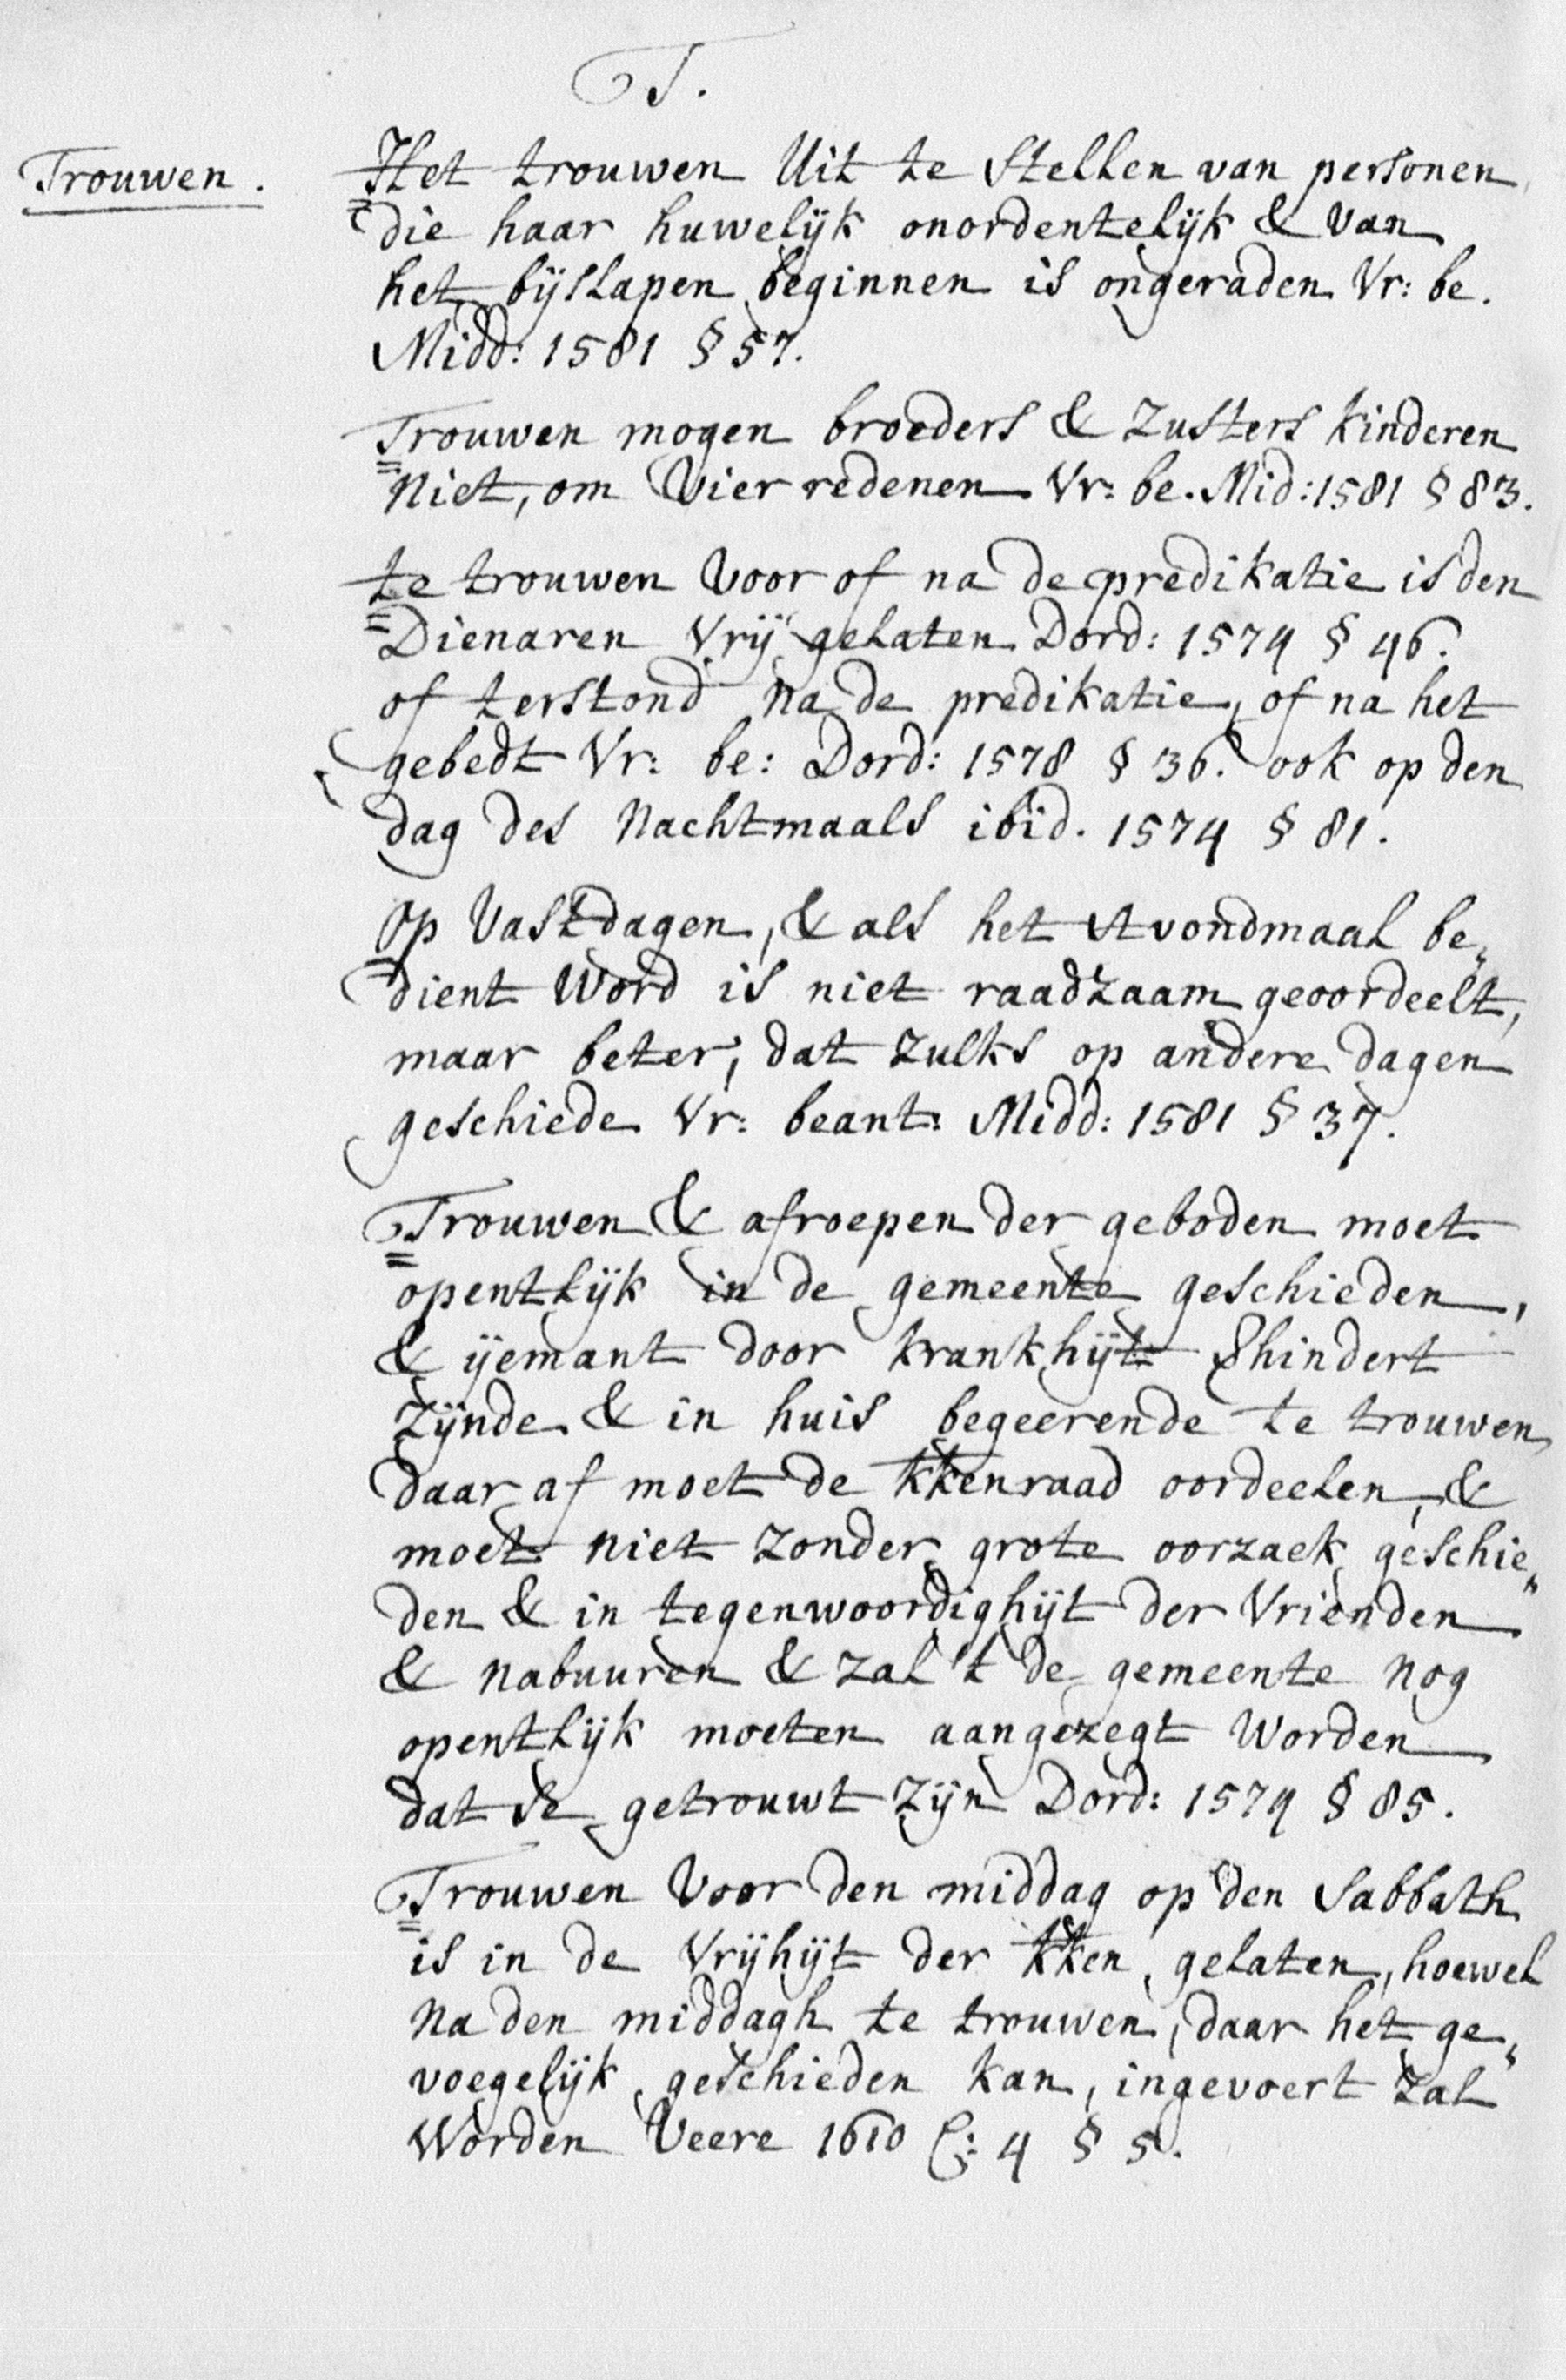 T.
Trouwen.
Het trouwen Uit te stellen van personen
die haar huwelijk onordentelijk & van
het bijslapen beginnen is ongeraden Vr: be.
Midd: 1581 § 57.
Trouwen mogen broeders & zusters kinderen
niet, om vier redenen Vr: be. Mid: 1581 § 83.
te trouwen voor of na de predikatie is den
Dienaren vrij gelaten Dord: 1574 § 46.
of terstond na de predikatie, of na het
gebedt Vr: be: Dord: 1578 § 36. ook op den
dag des Nachtmaals ibid. 1574 § 81.
Op Vastdagen, & als het Avondmaal be„
dient word is niet raadzaam geoordeelt,
maar beter, dat zulks op andere dagen
geschiede Vr: beant: Midd: 1581 § 37.
Trouwen & afroepen der geboden moet
opentlijk in de gemeente geschieden,
& ijemant door krankhijt hindert
zijnde & in huis begeerende te trouwen
daar af moet de kkenraad oordeelen, &
moet niet zonder grote oorzaek geschie„
den & in tegenwoordighijt der Vrienden
& nabuuren & zal 't de gemeente nog
opentlijk moeten aangezegt worden
dat se getrouwt zijn Dord: 1574 § 85.
Trouwen voor den middag op den Sabbath
is in de vrijhijt der kken gelaten, hoewel
na den middagh te trouwen, daar het ge„
voegelijk geschieden kan, ingevoert zal
worden Veere 1610 C: 4 § 5.